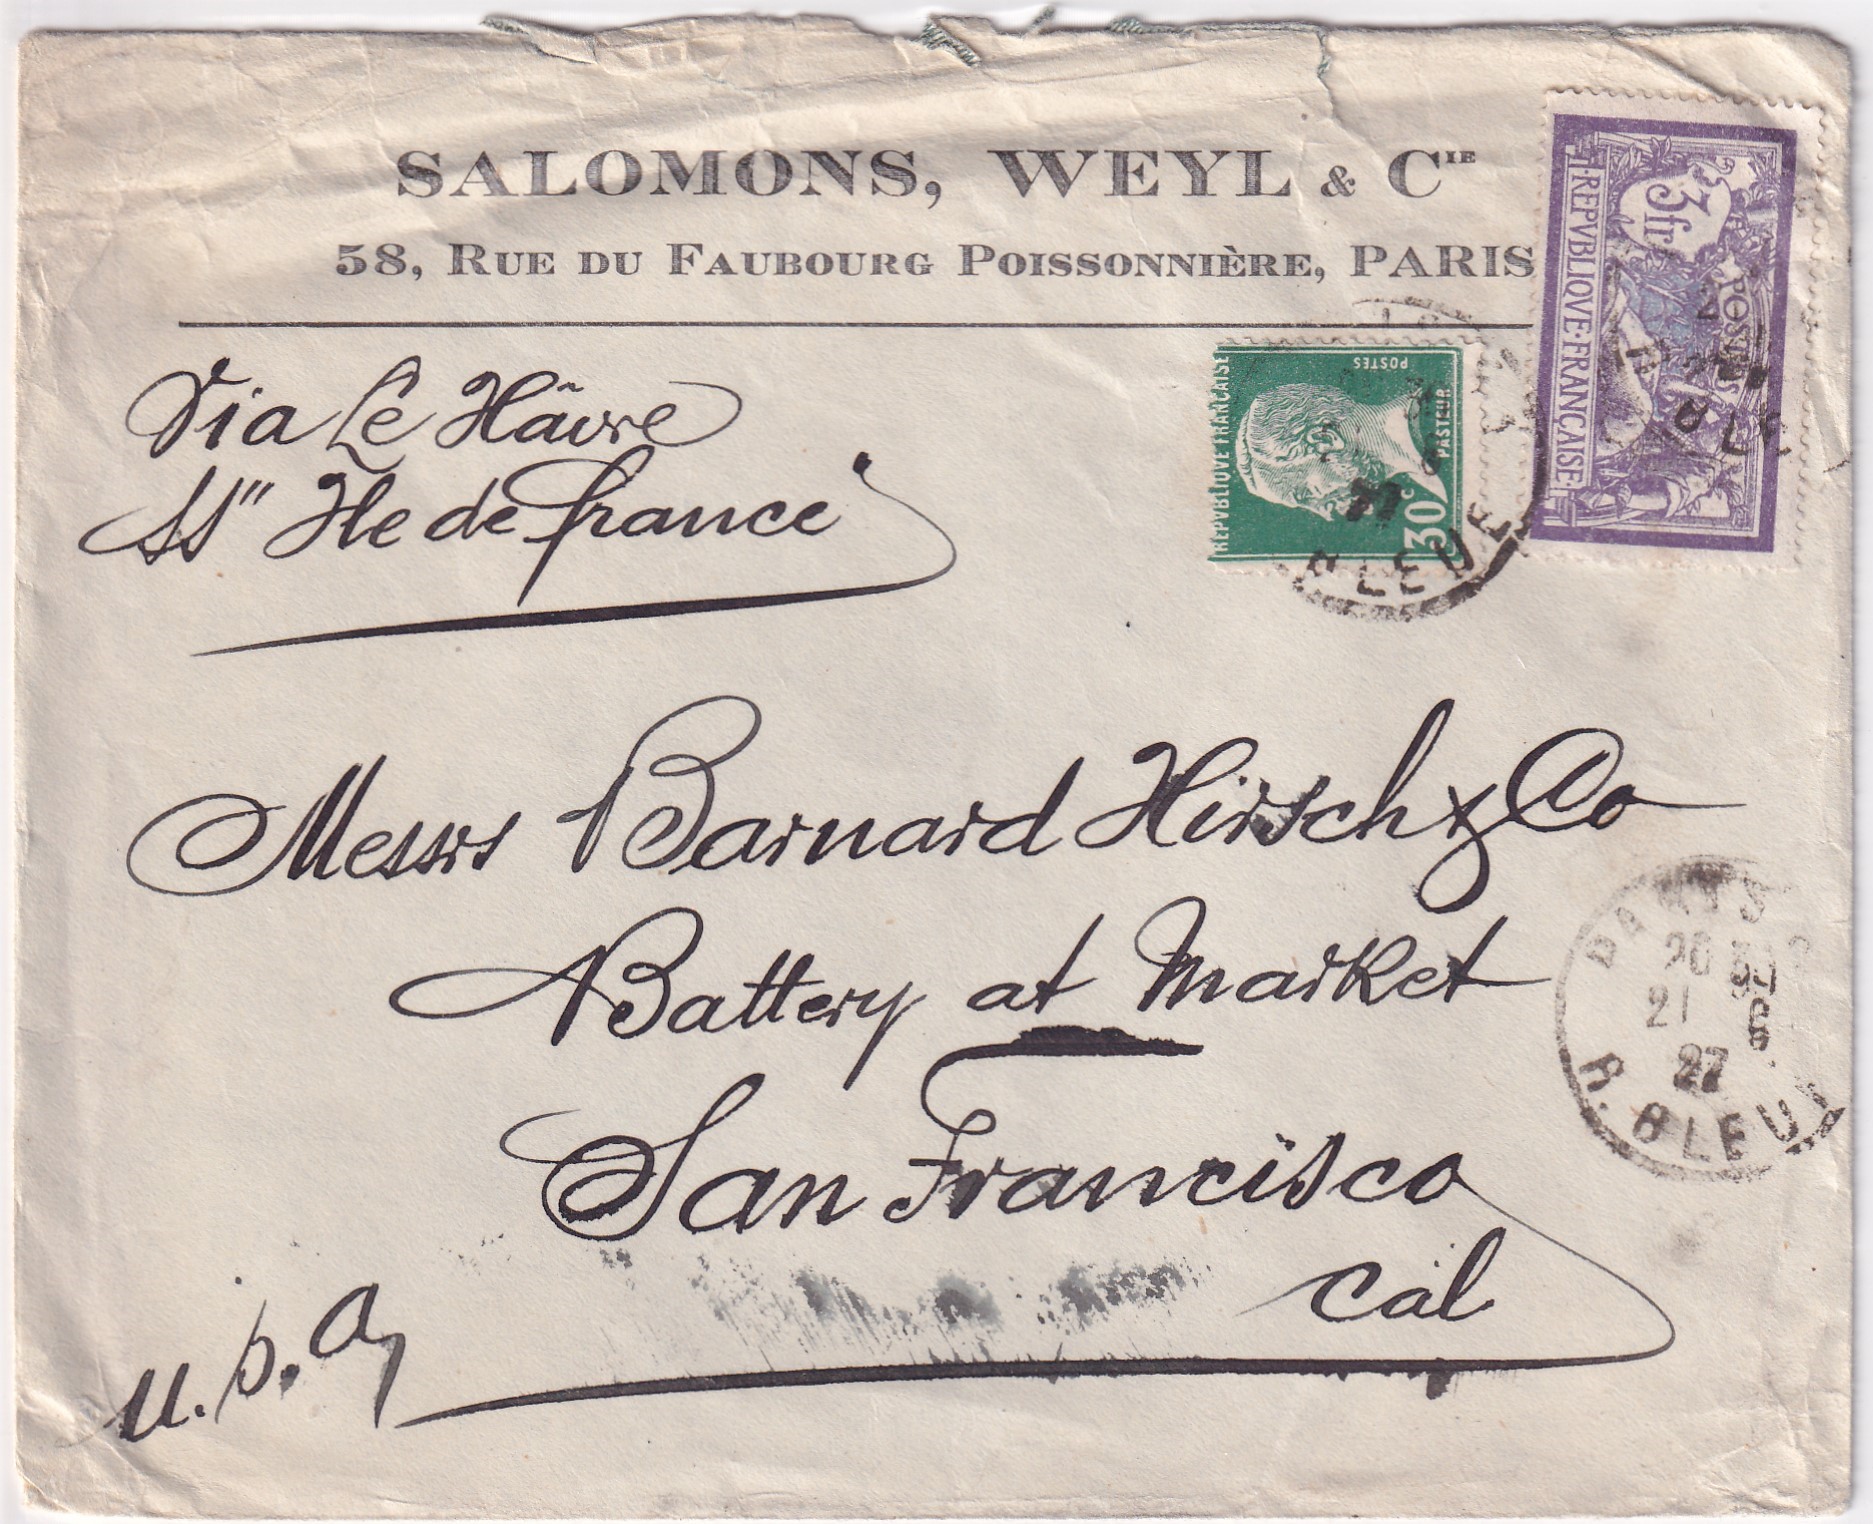 SALOMONS, WEYL & CIE
58, RUE DU FAUBOURG POISSONNIÈRE, PARIS
3fr
REPVBLIQVE·FRANÇAISE
POSTES
REPVBLIQVE FRANCAISE
POSTES
PASTEUR
30c
BLEUE
Via Le Hâvre
SS" Ile de france"
Messrs Barnard Hirsch & Co
Battery at Market
San Francisco
Cal
U.S.A
PARIS
20
21 6
27
R. BLEUE